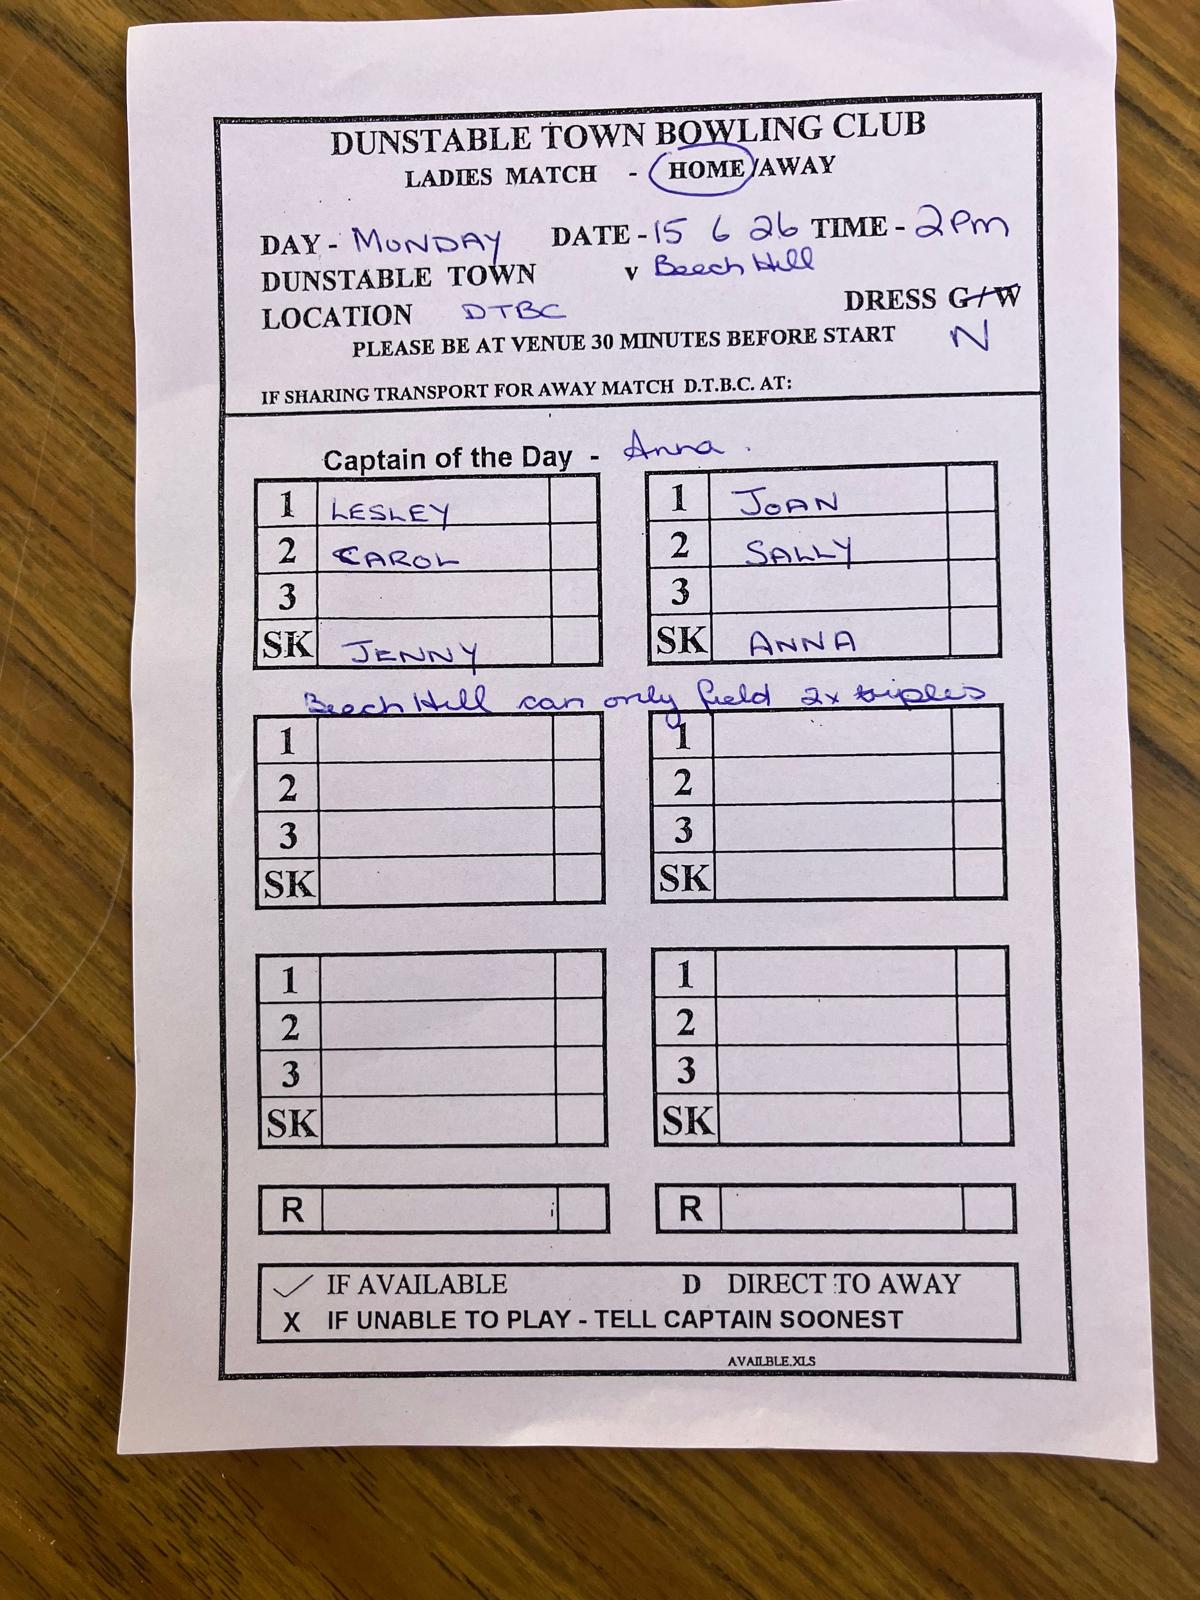 DUNSTABLE TOWN BOWLING CLUB
LADIES MATCH - HOME/AWAY
DAY - MONDAY DATE - 15 6 26 TIME - 2pm
DUNSTABLE TOWN v Beech Hill
LOCATION DTBC DRESS G/W
N
PLEASE BE AT VENUE 30 MINUTES BEFORE START
IF SHARING TRANSPORT FOR AWAY MATCH D.T.B.C. AT:
Captain of the Day - Anna.
1 LESLEY
2 CAROL
3
SK JENNY
1 JOAN
2 SALLY
3
SK ANNA
Beech Hill can only field 2x triples
1
2
3
SK
1
2
3
SK
1
2
3
SK
1
2
3
SK
R
R
✓ IF AVAILABLE D DIRECT TO AWAY
X IF UNABLE TO PLAY - TELL CAPTAIN SOONEST
AVAILBLE.XLS